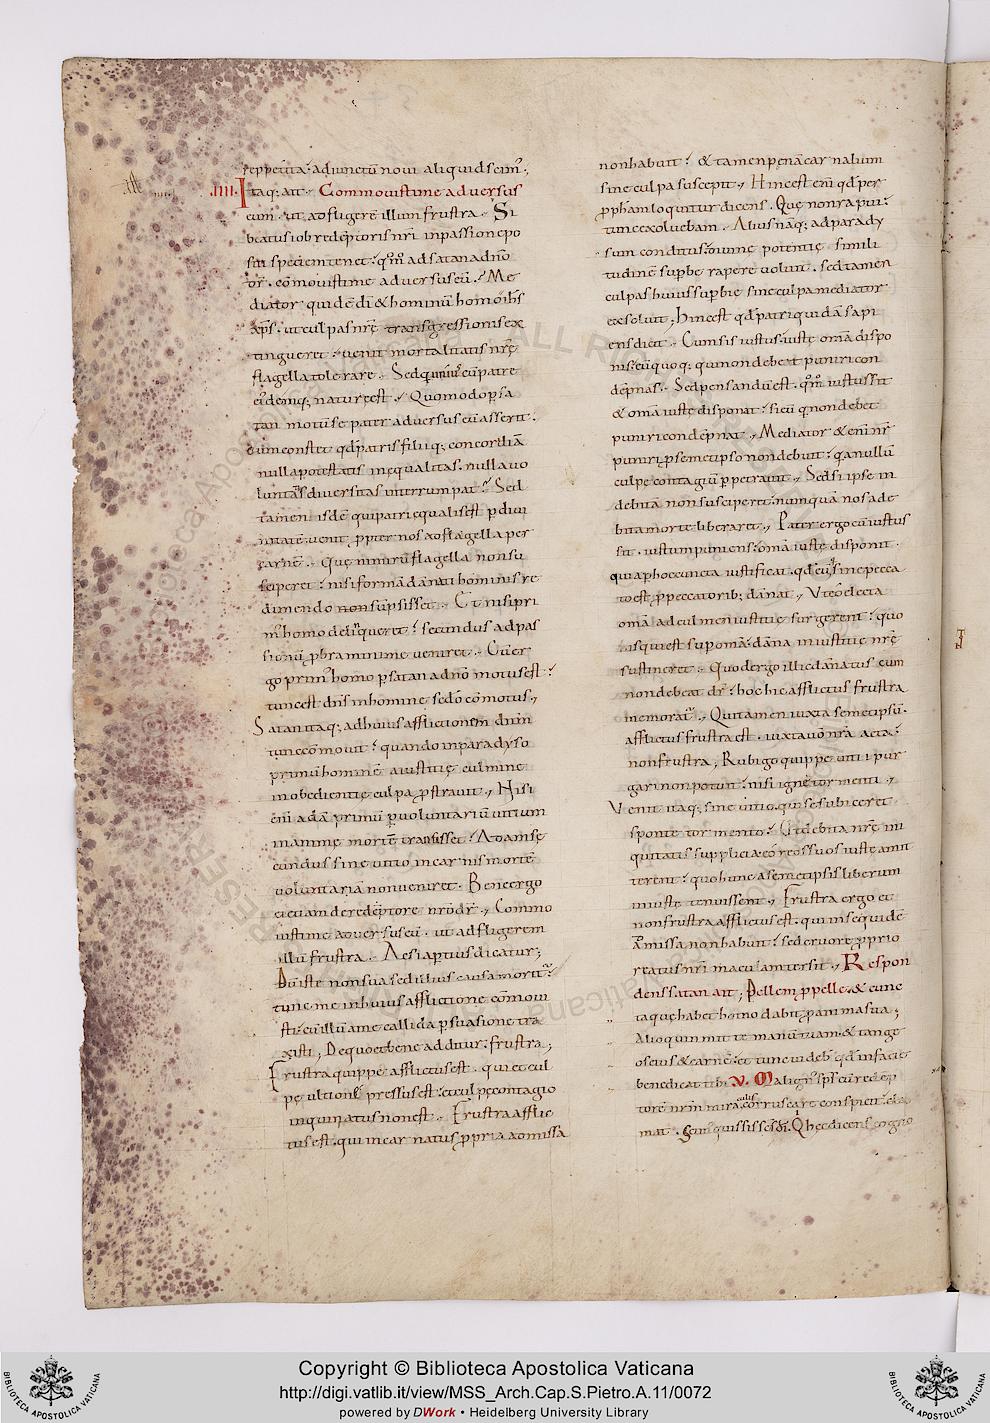 reppetita adiunctū novi aliquid seim'.
.IIII. Itaq; ait. Commovistime adversus
eum. ut adfligerē illum frustra. Si
beatus iob redēptoris nr̄i in passione po
siti speciem tenet. qm̄ ad satan adn̄o
dr̄. cōmovistime adversus eū. Me
diator quidē dī & hominū homo ihs
xp̄s. ut culpas nr̄ę transgressionis ex
tingueret. venit mortalitatis nr̄ę
flagella tolerare. Sed cū patre
eidemq; naturę est. Quomodo p̄ sa
tan motū se pater adversus eū asserit.
cum constet qd̄ patris filiiq; concordiā
nulla potestatis inęqualitas. nulla vo
luntatis diversitas interrumpat. Sed
tamen isdē qui patri ęqualis est p divi
nitatē. venit ppter nos ad flagella per
carnē. Quę nimirū flagella non su
sciperet. nisi formā dānati hominis re
dimendo non sūpsisset. Et nisi pri
m' homo delinqueret. secundus ad pas
sionū pbra minime veniret. Cū er
go prim' homo p satan adn̄o motus est.
tunc est dn̄s in homine sedō cōmotus.
Satan itaq; ad huius afflictionem dn̄m
tunc cōmovit. quando in paradyso
primū hominē a iustitię culmine
inobedientię culpa pstravit. Nisi
eni adā primū p voluntariū vitium
in animę mortē transisset. Adam se
cundus sine vitio in carnis mortē
voluntariā non veniret. Bene ergo
ei etiam de redēptore nr̄o dr̄. Commo
vistime adversus eū. ut adfligerem
illū frustra. Ac si aptius dicatur;
Dū iste non sua sed illius causa morit'.
tunc me in huius afflictione cōmovi
sti. cū illū a me callida psuasione tra
xisti; De quo et bene additur. frustra;
Frustra quippe afflictus est. qui et cul
pę ultione pressus est. et culpę contagio
inquinatus non est. Frustra afflic
tus est. qui incarnatus ppria admissa
non habuit. & tamen pęnā carnalium
sine culpa suscepit. Hinc est eni qd̄ per
pphetam loquitur dicens. Quę non rapui.
tunc exolvebam. Alius namq; ad parady
sum conditus. divinę potentię simili
tudinē supbe rapere voluit. sed tamen
culpas huius supbię sine culpa mediator
exsolvit. Hinc est qd̄ patri quidā sapi
ens dicit. Cum sis iustus. iuste omā dispo
nis. eū quoq; qui non debeat puniri con
dēpnas. Sed pensandū est. qm̄ iustus sit
& omā iuste disponat. si eū q non debet
puniri condēpnat. Mediator & eni nr̄
puniri p semetipso non debuit. qa nullū
culpę contagiū ppetravit. Sed si ipse in
debitā non susciperet. nunquā nos a de
bita morte liberaret. Pater ergo cū iustus
sit. iustum puniens. omā iuste disponit.
quia p hoc cuncta iustificat. qd̄ eū sine pecca
to est p peccatorib; dānat. Ut eo electa
omā ad culmen iustitię surgerent. quo
is qui est sup omā. dāna iniustitię nr̄ę
sustineret. Quod ergo illic dānatus cum
non debeat dr̄. hoc hic afflictus frustra
memorat'. Qui tamen iuxta semetipsū.
afflictus frustra est. iuxta vō nr̄a acta.
non frustra; Rubigo quippe vitii pur
gari non potuit. nisi igne tormenti.
Venit itaq; sine vitio. qui se subiceret
sponte tormento. Ut debita nr̄ę ini
quitatis supplicia. eo reos suos iuste amit
terent. quo hunc a semetipsis liberum
iniuste tenuissent. Frustra ergo et
non frustra afflictus est. qui in se quidē
admissa non habuit. sed cruore pprio
reatus nr̄i maculam tersit. Respon
dens satan ait; Pellem p pelle. & cunc
ta quę habet homo dabit p anima sua;
Alioquin mitte manū tuam. & tange
os eius & carnē. et tunc videb' qd̄ in facie
benedicat tibi. V. Malign' sps cū redēp
torē nrm miraculis corruscare conspicit. cla
mat. Scim' qui sis scs dī. Q hęc dicens cogno